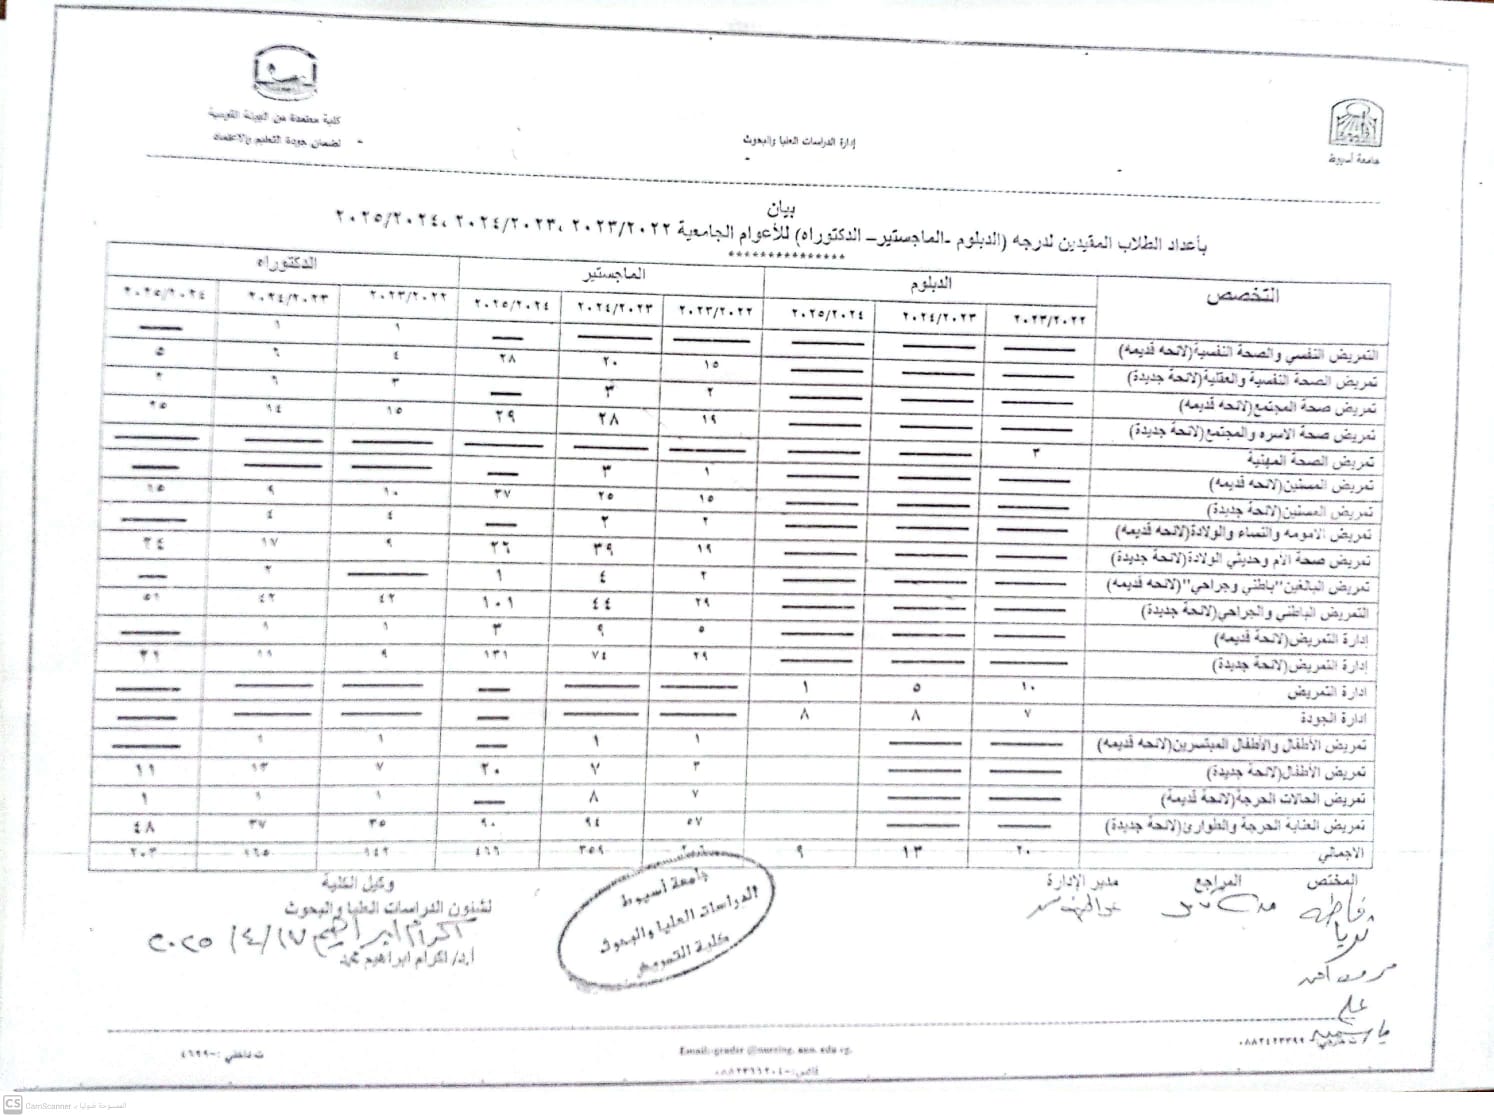 كلية معتمدة من الهيئة القومية
لضمان جودة التعليم والاعتماد
إدارة الدراسات العليا والبحوث
جامعة أسيوط
بيان
بأعداد الطلاب المقيدين لدرجه (الدبلوم -الماجستير– الدكتوراه) للأعوام الجامعية ٢٠٢٣/٢٠٢٢ ،٢٠٢٤/٢٠٢٣ ،٢٠٢٥/٢٠٢٤
***************
التخصص الدبلوم الماجستير الدكتوراه
٢٠٢٣/٢٠٢٢ ٢٠٢٤/٢٠٢٣ ٢٠٢٥/٢٠٢٤ ٢٠٢٣/٢٠٢٢ ٢٠٢٤/٢٠٢٣ ٢٠٢٥/٢٠٢٤ ٢٠٢٣/٢٠٢٢ ٢٠٢٤/٢٠٢٣ ٢٠٢٥/٢٠٢٤
التمريض النفسي والصحة النفسية(لائحه قديمه) — — — — — — ١ ١ —
تمريض الصحة النفسية والعقلية(لائحة جديدة) — — — ١٥ ٢٠ ٢٨ ٤ ٦ ٥
تمريض صحة المجتمع(لائحه قديمه) — — — ٢ ٣ — ٣ ٦
تمريض صحة الاسره والمجتمع(لائحة جديدة) — — — ١٩ ٢٨ ٢٩ ١٥ ١٤ ٢٥
تمريض الصحة المهنية ٣ — — — — — — — —
تمريض المسنين(لائحه قديمه) — — — ١ ٣ — — — —
تمريض المسنين(لائحة جديدة) — — — ١٥ ٢٥ ٣٧ ١٠ ٩ ١٥
تمريض الامومه والنساء والولادة(لائحه قديمه) — — — ٢ ٢ — ٤ ٤ —
تمريض صحة الأم وحديثي الولادة(لائحة جديدة) — — — ١٩ ٣٩ ٢٦ ٩ ١٧ ٢٤
تمريض البالغين"باطني وجراحي"(لائحه قديمه) — — — ٢ ٤ ١ — ٢ —
التمريض الباطني والجراحي(لائحة جديدة) — — — ٢٩ ٤٤ ١٠١ ٤٢ ٤٢ ٥١
إدارة التمريض(لائحة قديمه) — — — ٥ ٩ ٣ ١ ١ —
إدارة التمريض(لائحة جديدة) — — — ٢٩ ٧٤ ١٣١ ٩ ١١ ٢١
ادارة التمريض ١٠ ٥ ١ — — — — — —
ادارة الجودة ٧ ٨ ٨ — — — — — —
تمريض الأطفال والأطفال المبتسرين(لائحه قديمه) — — ١ ١ — ١ ١ —
تمريض الأطفال(لائحة جديدة) — — ٣ ٧ ٢٠ ٧ ١٣ ١١
تمريض الحالات الحرجة(لائحة قديمة) — — ٧ ٨ — ١ ١ ١
تمريض العناية الحرجة والطوارئ(لائحة جديدة) — — ٥٧ ٩٤ ٩٠ ٣٥ ٣٧ ٤٨
الاجمالي ٢٠ ١٣ ٩ ٣٥٩ ٤٦٦ ١٤٢ ١٦٥ ٢٠٣
المختص المراجع مدير الإدارة وكيل الكلية
لشئون الدراسات العليا والبحوث
اكرام ابراهيم ٢٠٢٥/٤/١٧
أ.د/ اكرام ابراهيم محمد
جامعة أسيوط
الدراسات العليا والبحوث
كلية التمريض
فاطمه
ت خارجي: ٠٨٨٢٤٢٣٣٩٩
Email:-grader @nursing. aun. edu eg.
ت داخلي :-٤٦٩٩
فاكس:-٠٨٨٢٣٦٦٢٠٤
CS CamScanner الممسوحة ضوئيا بـ